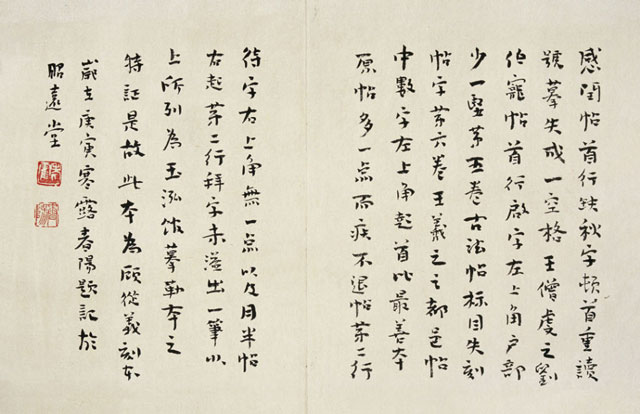 感閏帖首行缺秋字頓首重讀
號摹失成一空格王僧虔之劉
伯寵帖首行啟字左上角户部
少一竪第五卷古法帖标目失刻
帖字第六卷王羲之之都邑帖
中數字左上角起首此最善本
原帖多一点而疾不退帖第二行
待字右上角無一点以及月半帖
右起第二行拜字未溢出一筆以
上所列為玉泓馆摹勒本之
特証是故此本為顧從義刻本
歲在庚寅寒露春陽题記於
昭遠堂